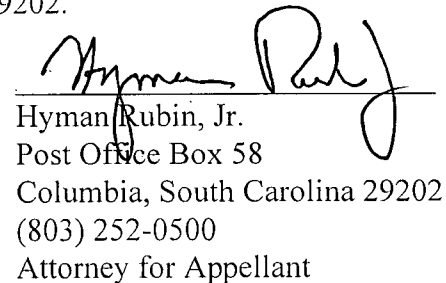 9202.
Hyman Rubin Jr
Hyman Rubin, Jr.
Post Office Box 58
Columbia, South Carolina 29202
(803) 252-0500
Attorney for Appellant